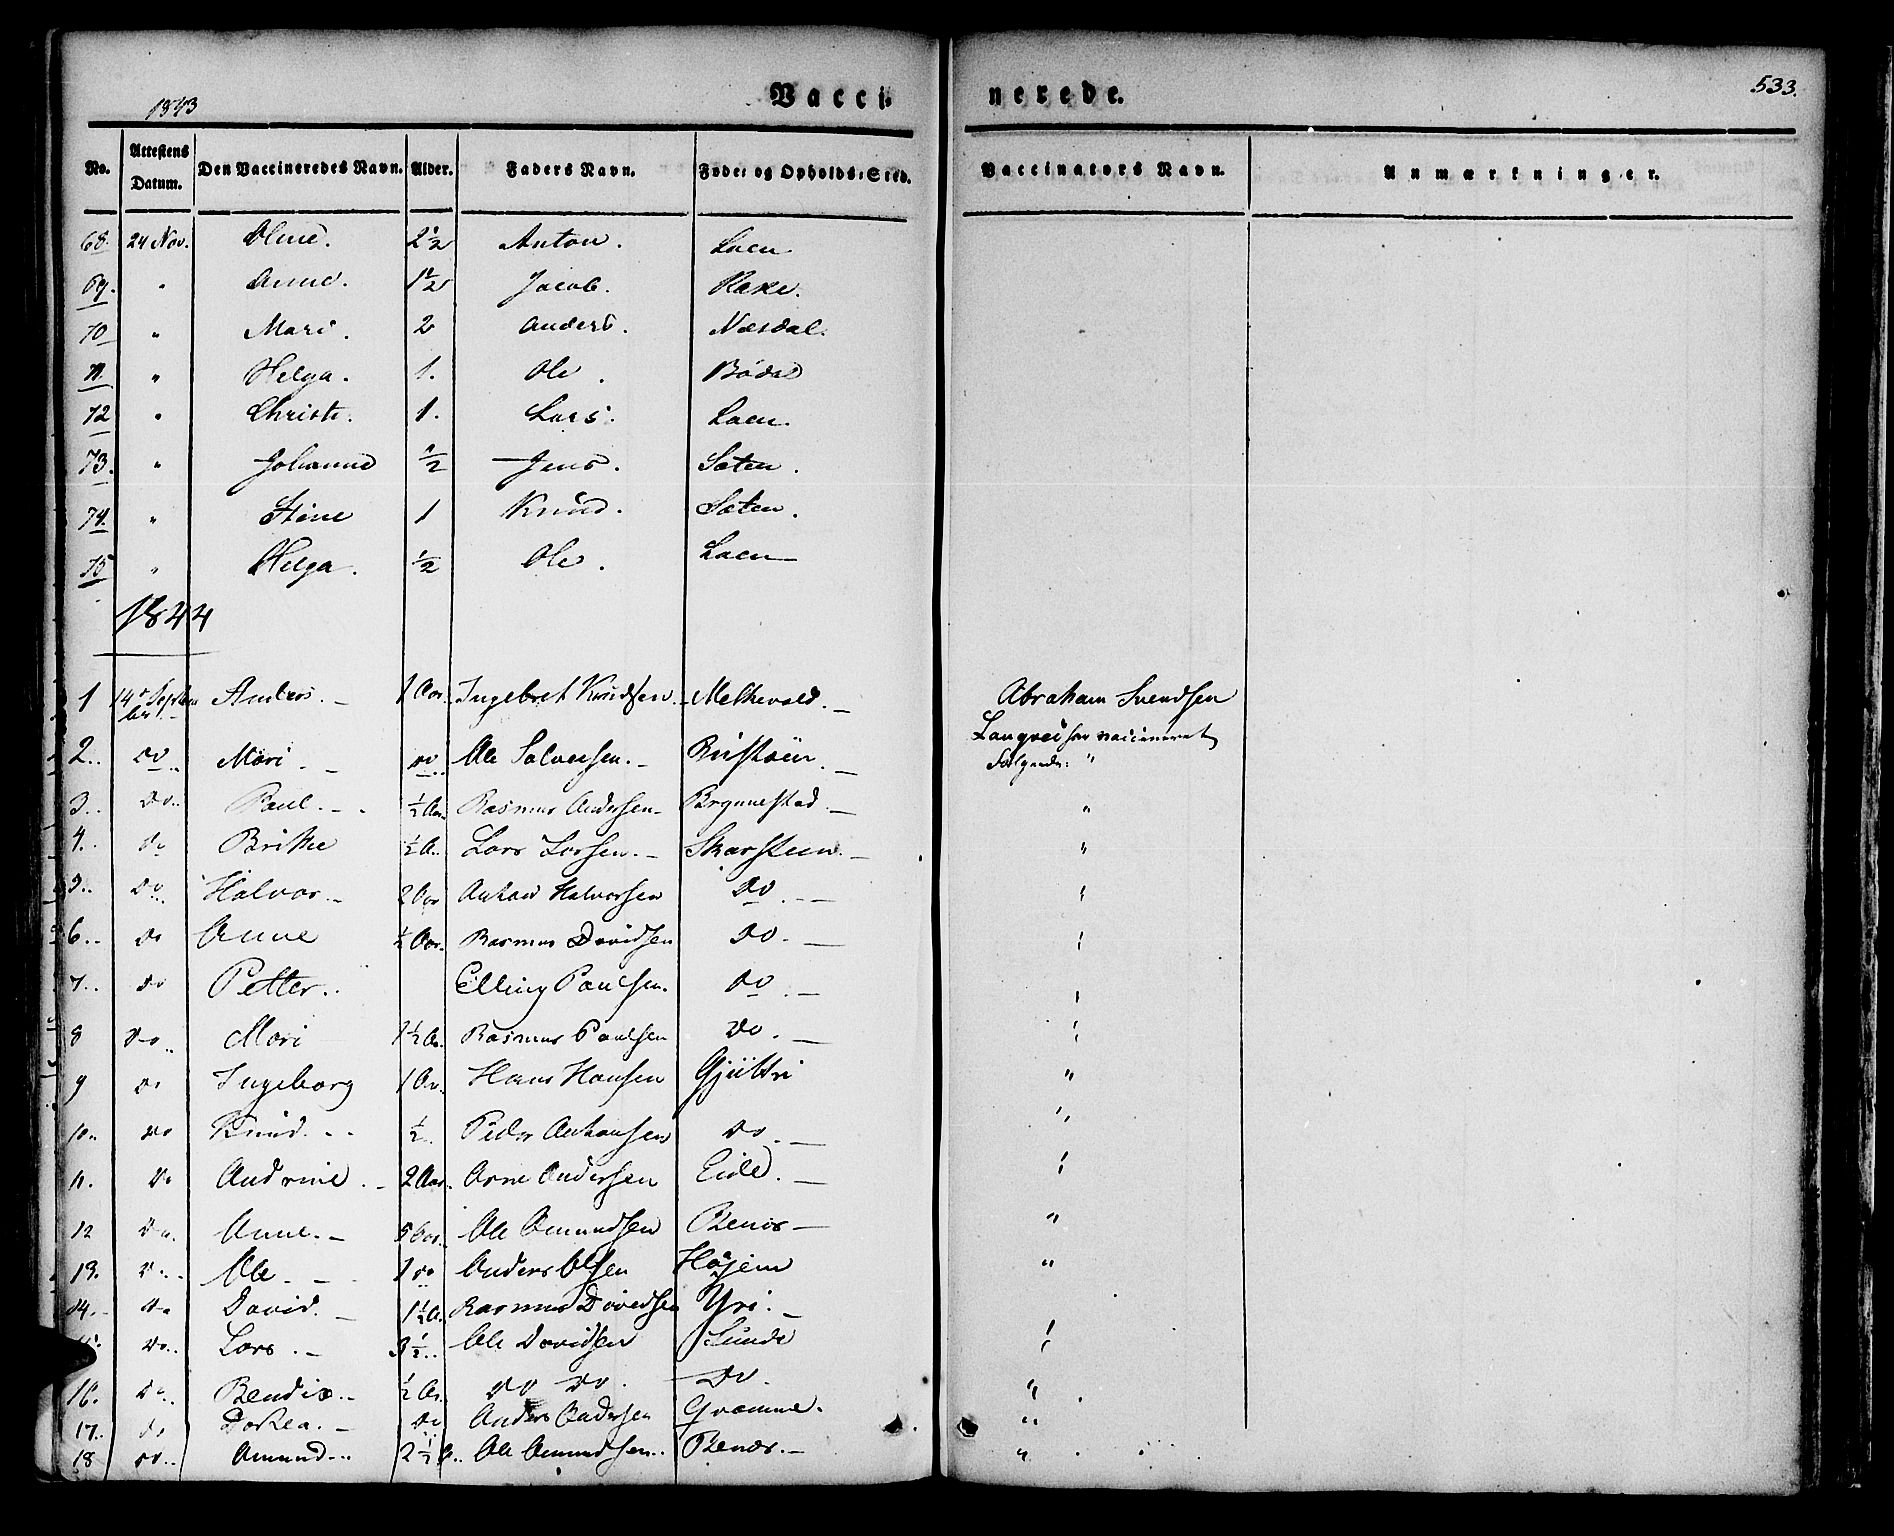 1843 Vaccinerede. 533.
No. Attestens Datum. Den Vaccineredes Navn. Alder. Faders Navn. Føde- og Opholds-Sted. Vaccinators Navn. Anmærkninger.
68. 24 Nov. Oline. 2½ Anton. Loen
69. " Anne. 1½ Jacob. Rake.
70 " Mari. 2 Anders. Næsdal.
71. " Helga. 1. Ole. Bödal
72 " Christi. 1. Lars. Loen.
73. " Johanne ½ Jens. Sæten.
74. " Stine 1 Knud. Sæten.
75 " Helga. ½ Ole. Loen
1844
1 14de Septem ber Anders. 1 Aar. Ingebret Knudsen. Melkevold. Abraham Svendsen
Langvei har vaccineret
2.. do Mari. do Ole Salversen. Følgende: "
3.. do.. Paul. ½ Aar. Rasmus Andersen Brynnestad. "
4. do Brithe ½ A.. Lars Larsen. Skarsteen. "
5.. do Halvor. 2 Aar Anthon Halvorsen do. "
6.. do Anne ½ Aar. Rasmus Davidsen do. "
7.. do Petter.. Elling Paulsen. do. "
8 do.. Mari 1½ Aa. Rasmus Paulsen do. "
9 do Ingeborg 1 Aa. Hans Hansen "
10.. do Knud. ½.. Peder Anthonsen do. "
11. do Andrine. 2 Aar. Arne Andersen Eide. "
12 do. Anne. 5 Aar. Ole Amundsen Renøs "
13. do.. Ole. 1 do Anders Olsen Højem "
14. do David. 1½ A. Rasmus Davidsen Yri. "
15. do.. Lars. 3½.. Ole Davidsen Sunde "
16. do.. Bendix.. ½ Aa. do do. do. "
17.. do Dorthea. do Anders Andersen Græmme. "
18 do.. Amund.. 2½ A.. Ole Amundsen.. Renøs. "